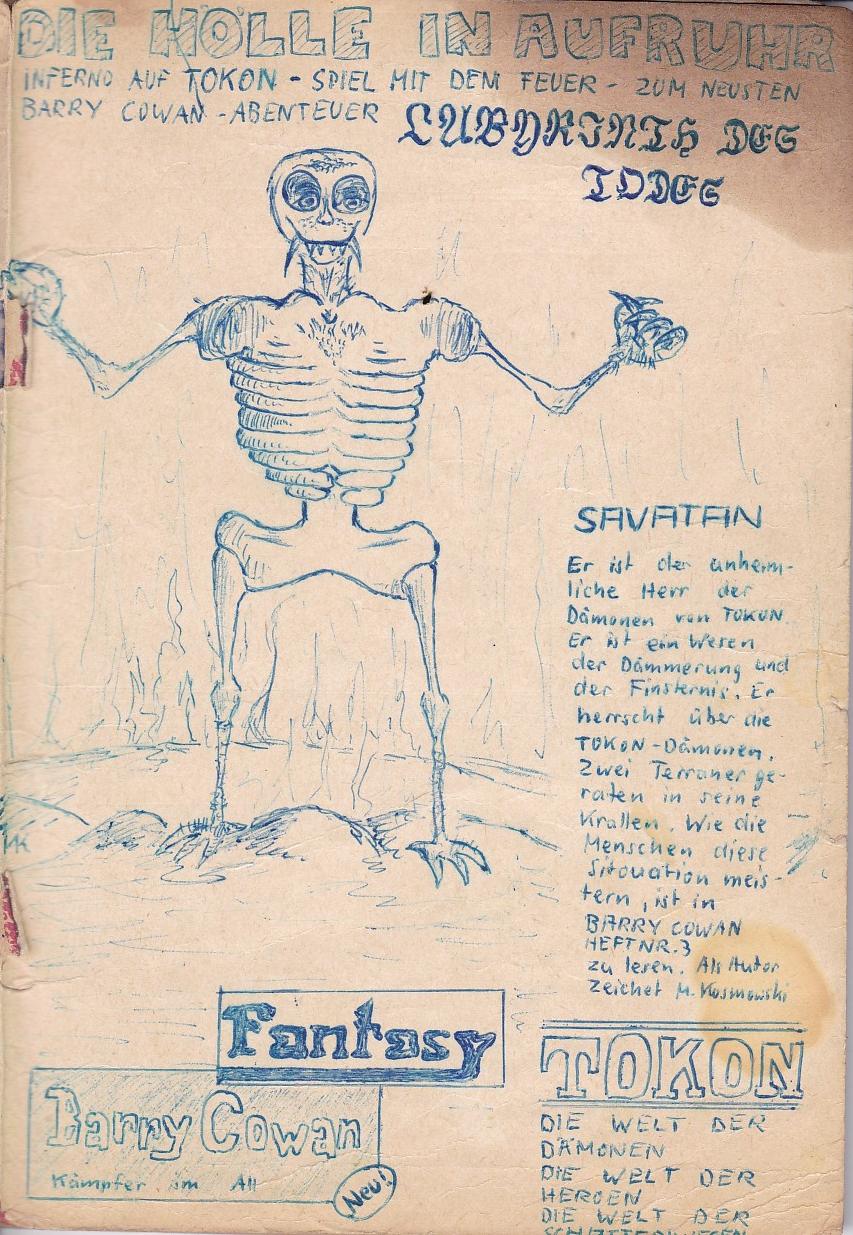 DIE HÖLLE IN AUFRUHR
INFERNO AUF TOKON - SPIEL MIT DEM FEUER - ZUM NEUSTEN
BARRY COWAN - ABENTEUER
LABYRINTH DES
TODES
SAVATAN
Er ist der unheim-
liche Herr der
Dämonen von TOKON.
Er ist ein Wesen
der Dämmerung und
der Finsternis. Er
herrscht über die
TOKON-Dämonen.
Zwei Terraner ge-
raten in seine
Krallen. Wie die
Menschen diese
Sitouation meis-
tern, ist in
BARRY COWAN
HEFT NR. 3
zu lesen. Als Autor
zeichet M. Kosmowski
Fantasy
Barry Cowan
Kämpfer im All
Neu!
TOKON
DIE WELT DER
DÄMONEN
DIE WELT DER
HEROEN
DIE WELT DER